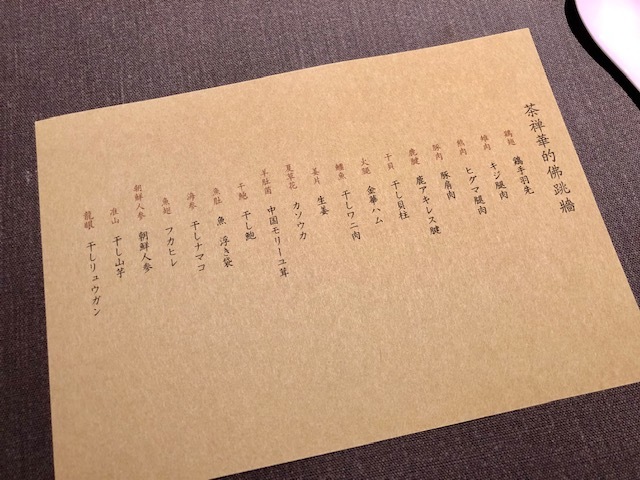 茶禅華的佛跳牆
鶏翅 鶏手羽先
雉肉 キジ腿肉
熊肉 ヒグマ腿肉
豚肉 豚肩肉
鹿腱 鹿アキレス腱
干貝 干し貝柱
火腿 金華ハム
鰐魚 干しワニ肉
姜片 生姜
夏草花 カソウカ
羊肚菌 中国モリーユ茸
干鮑 干し鮑
魚肚 魚 浮き袋
海参 干しナマコ
魚翅 フカヒレ
朝鮮人参 朝鮮人参
淮山 干し山芋
龍眼 干しリュウガン